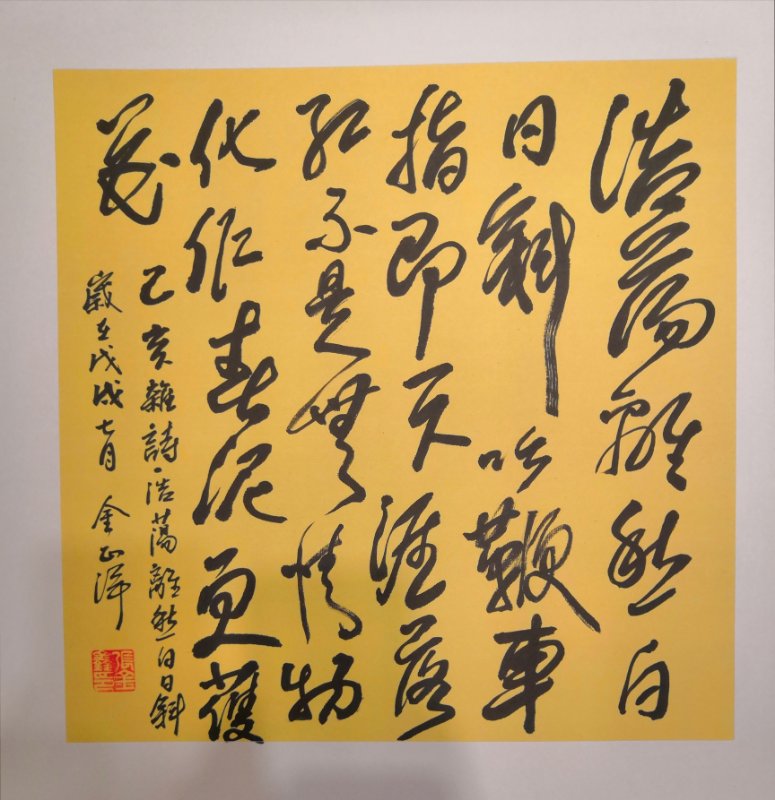 浩蕩離愁白
日斜吟鞭車
指即天涯落
紅不是無情物
化作春泥更護
花
己亥雜詩·浩蕩離愁白日斜
歲在戊戌七月 金正洋